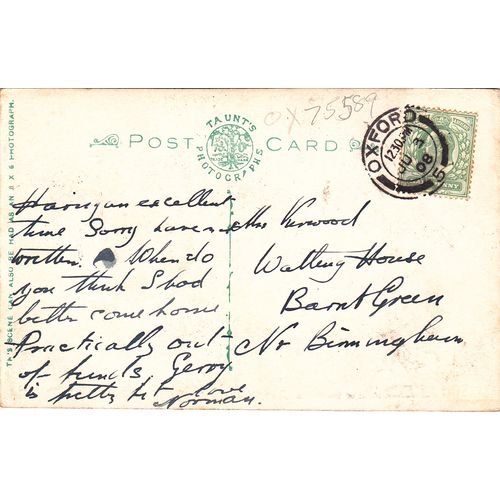 OX75589
TAUNT'S
PHOTOGRAPHS
POST CARD
OXFORD
12.30PM
JU 3
08
5
Having an excellent
time Sorry have not
written. When do
you think I had
better come home
Practically out
of funds. Gerry
is pretty
love
Norman.
Mrs Kirwood
Watling House
Barnt Green
Nr Birmingham
SCENE CAN ALSO BE HAD AS AN 8 X 6 PHOTOGRAPH.